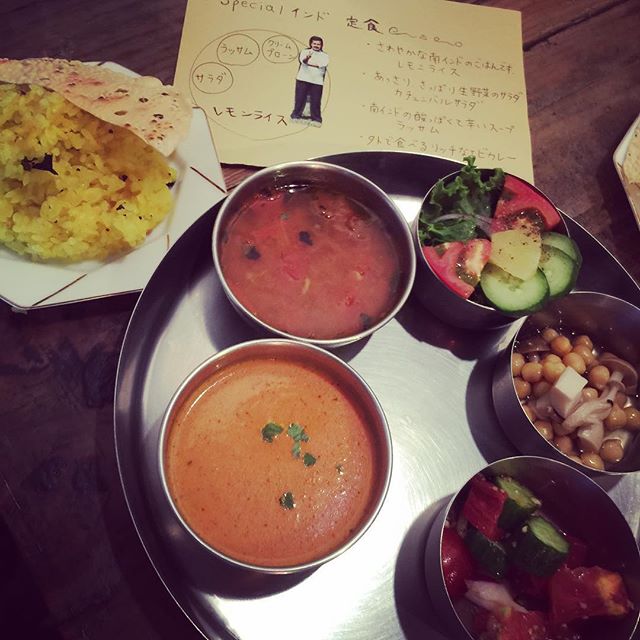 Specialインド 定食
ラッサム
クリーム
プローン
サラダ
レモンライス
・さわやかな南インドのごはんです。
レモンライス
・あっさり、さっぱり生野菜のサラダ
カチュンバルサラダ
・南インドの酸っぱくて辛いスープ
ラッサム
・外で食べるリッチなエビカレー